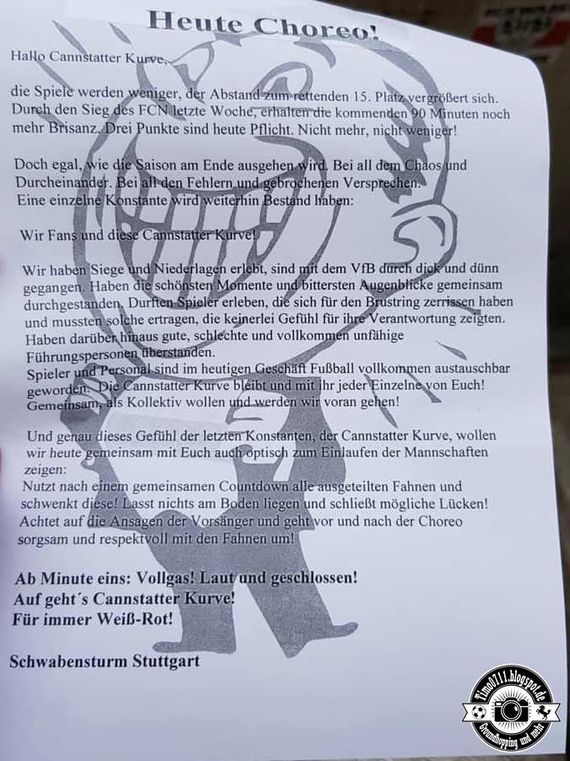 Heute Choreo!
Hallo Cannstatter Kurve,
die Spiele werden weniger, der Abstand zum rettenden 15. Platz vergrößert sich.
Durch den Sieg des FCN letzte Woche, erhalten die kommenden 90 Minuten noch
mehr Brisanz. Drei Punkte sind heute Pflicht. Nicht mehr, nicht weniger!
Doch egal, wie die Saison am Ende ausgehen wird. Bei all dem Chaos und
Durcheinander. Bei all den Fehlern und gebrochenen Versprechen.
Eine einzelne Konstante wird weiterhin Bestand haben:
Wir Fans und diese Cannstatter Kurve!
Wir haben Siege und Niederlagen erlebt, sind mit dem VfB durch dick und dünn
gegangen. Haben die schönsten Momente und bittersten Augenblicke gemeinsam
durchgestanden. Durften Spieler erleben, die sich für den Brustring zerrissen haben
und mussten solche ertragen, die keinerlei Gefühl für ihre Verantwortung zeigten.
Haben darüber hinaus gute, schlechte und vollkommen unfähige
Führungspersonen überstanden.
Spieler und Personal sind im heutigen Geschäft Fußball vollkommen austauschbar
geworden. Die Cannstatter Kurve bleibt und mit ihr jeder Einzelne von Euch!
Gemeinsam, als Kollektiv wollen und werden wir voran gehen!
Und genau dieses Gefühl der letzten Konstanten, der Cannstatter Kurve, wollen
wir heute gemeinsam mit Euch auch optisch zum Einlaufen der Mannschaften
zeigen:
Nutzt nach einem gemeinsamen Countdown alle ausgeteilten Fahnen und
schwenkt diese! Lasst nichts am Boden liegen und schließt mögliche Lücken!
Achtet auf die Ansagen der Vorsänger und geht vor und nach der Choreo
sorgsam und respektvoll mit den Fahnen um!
Ab Minute eins: Vollgas! Laut und geschlossen!
Auf geht´s Cannstatter Kurve!
Für immer Weiß-Rot!
Schwabensturm Stuttgart
Timo0711.blogspot.de
Groundhopping und mehr